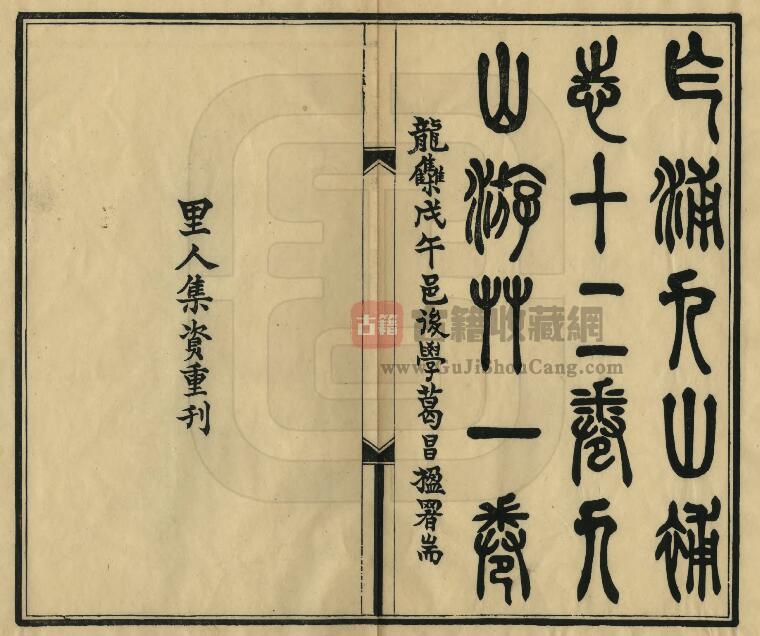 乍浦九山補
志十二卷九
山游艸一卷
龍雧戊午邑後學葛昌楹署耑
里人集資重刊
古籍
古籍收藏網
www.GuJiShouCang.com